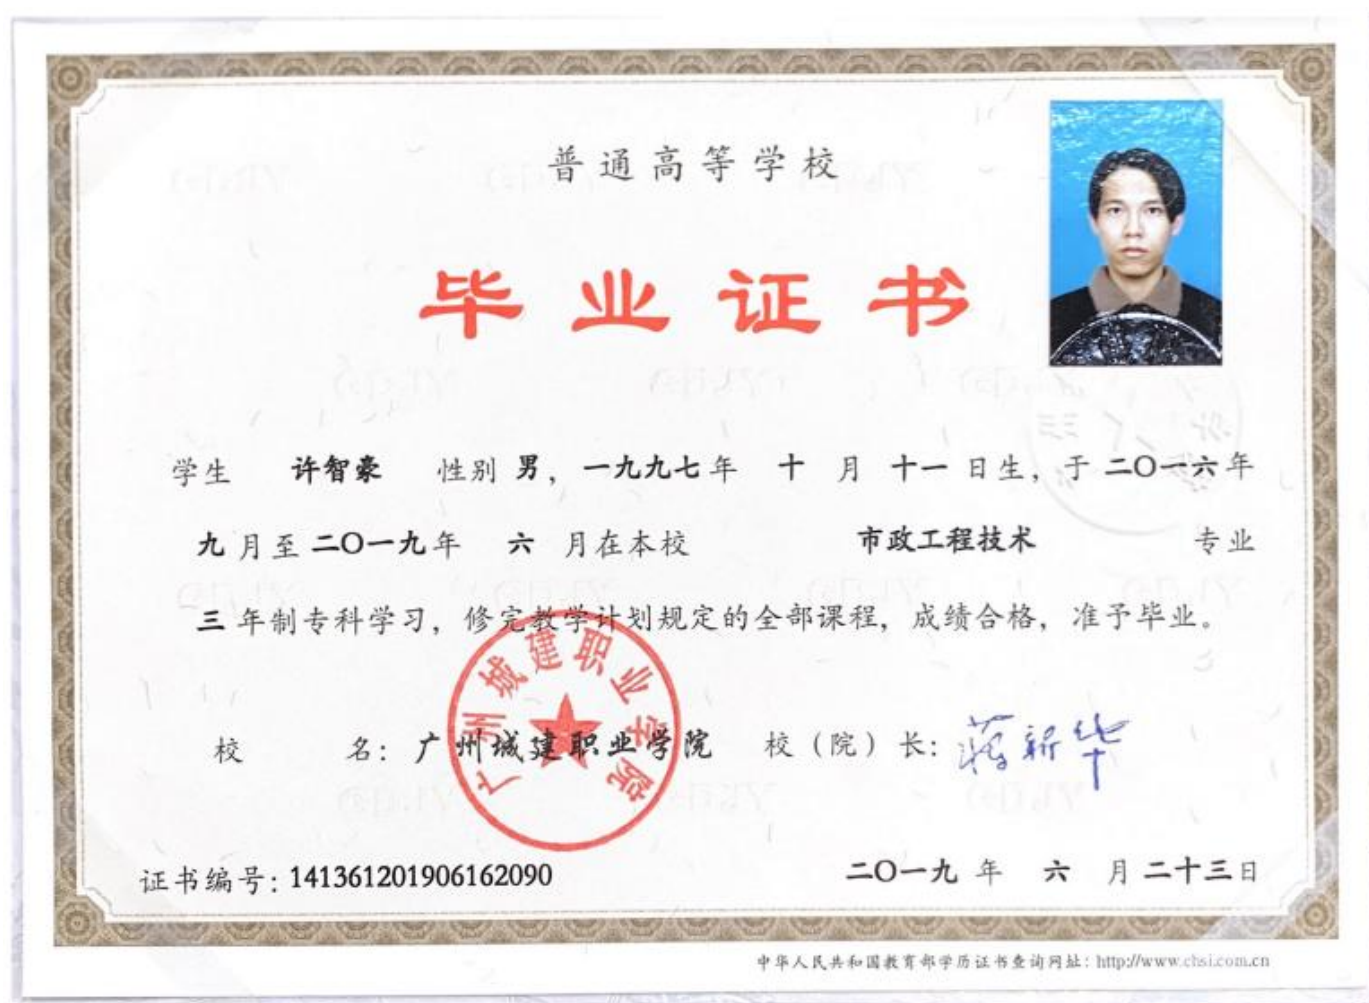 普通高等学校
毕业证书
学生 许智豪 性别 男，一九九七年 十 月 十一 日生，于 二〇一六年
九月至二〇一九年 六 月在本校 市政工程技术 专业
三年制专科学习，修完教学计划规定的全部课程，成绩合格，准予毕业。
广州城建职业学院
校 名：广州城建职业学院 校（院）长：蒋新华
证书编号：141361201906162090 二〇一九 年 六 月 二十三日
中华人民共和国教育部学历证书查询网址：http://www.chsi.com.cn